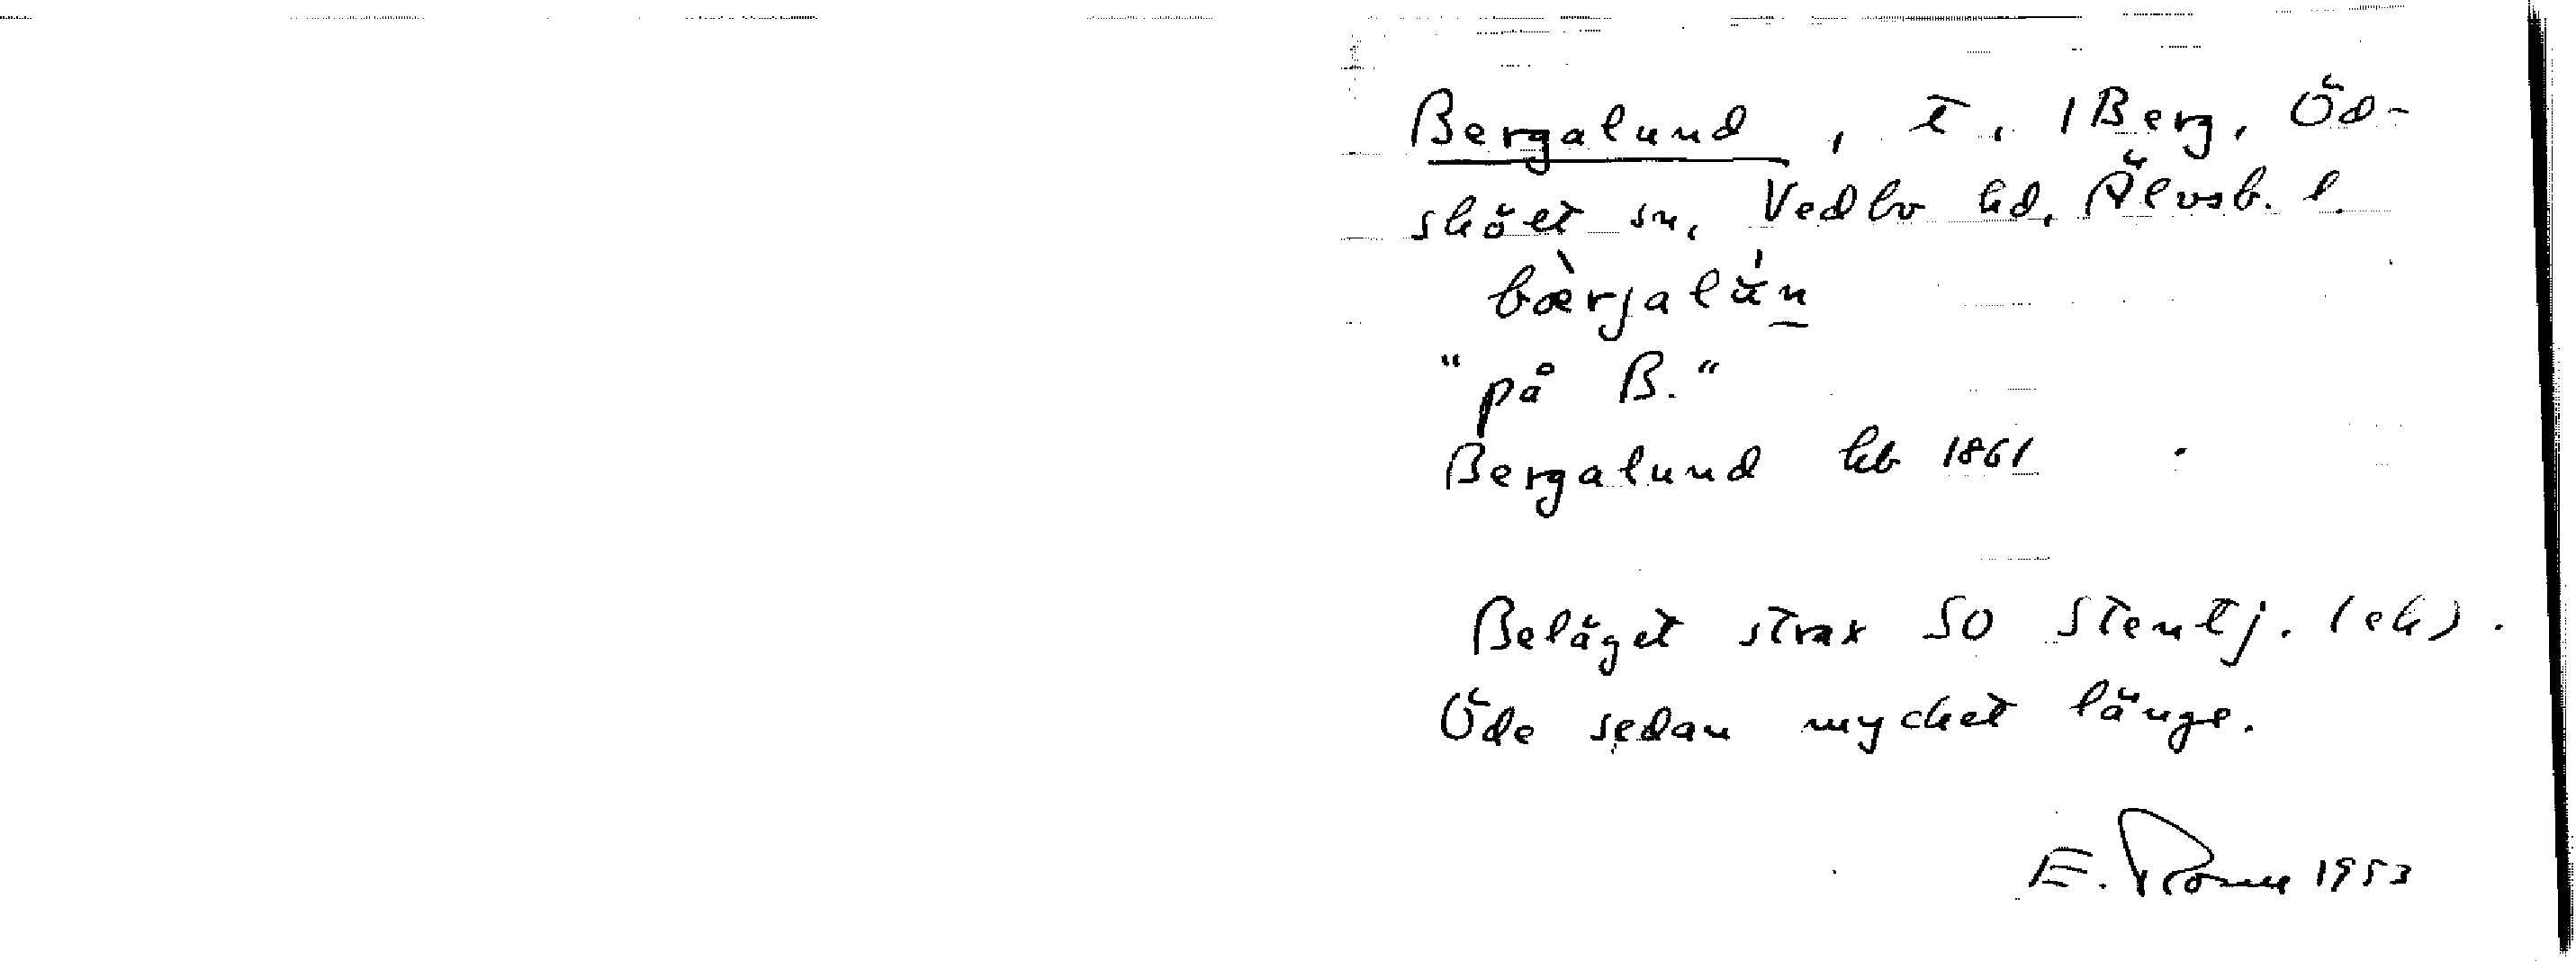 Bergalund, t. /Berg, Öd-
skölt sn, Vedbo hd, Älvsb. l.
bæ̀rjalún
"på B."
Bergalund hb 1861
Beläget strax SO Stentj. (ek).
Öde sedan mycket länge.
E. 1953